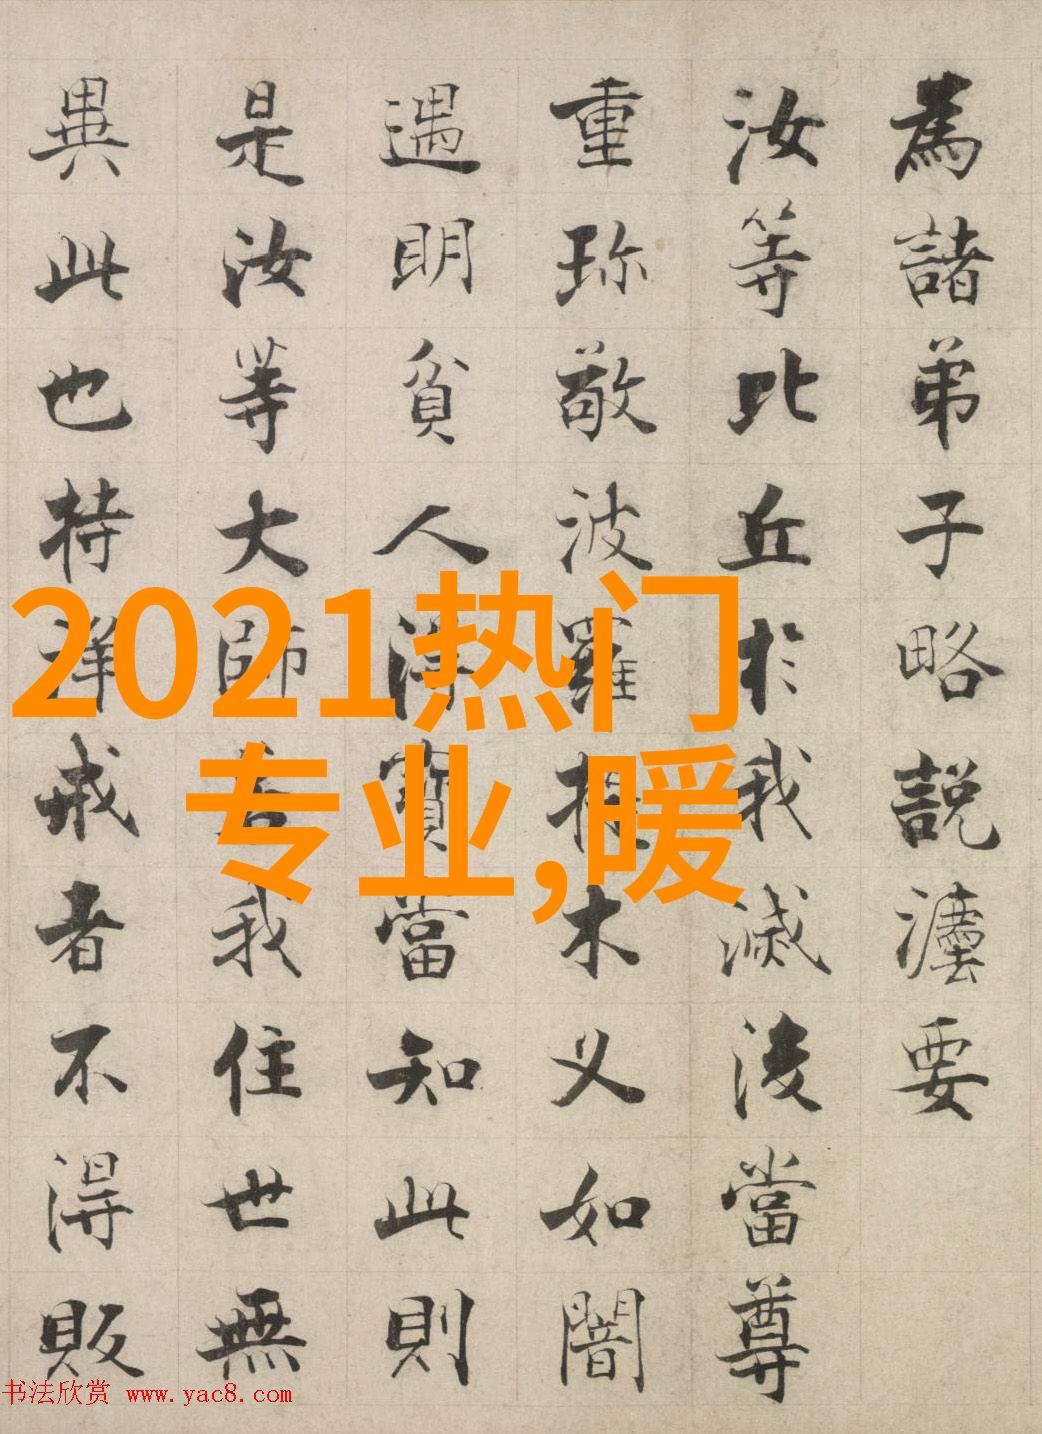 為諸弟子略說灋要
汝等比丘於我滅後當尊
重珎敬波羅提木叉如闇
遇明貧人得寶當知此則
是汝等大師我住世無
異此也持淨戒者不得販
2021热门
专业,暖
书法欣赏 www.yac8.com